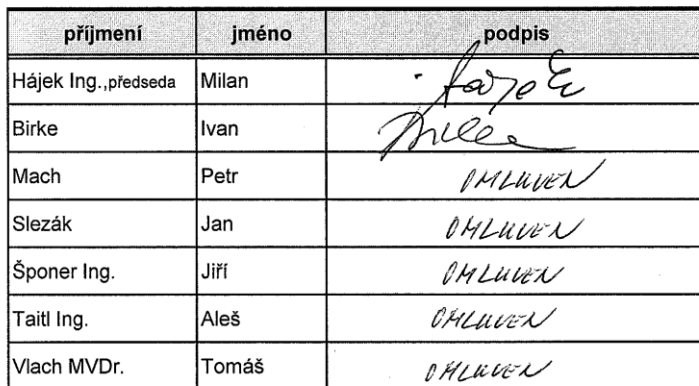 příjmení jméno podpis
Hájek Ing.,předseda Milan Hájek
Birke Ivan Birke
Mach Petr OMLUVEN
Slezák Jan OMLUVEN
Šponer Ing. Jiří OMLUVEN
Taitl Ing. Aleš OMLUVEN
Vlach MVDr. Tomáš OMLUVEN